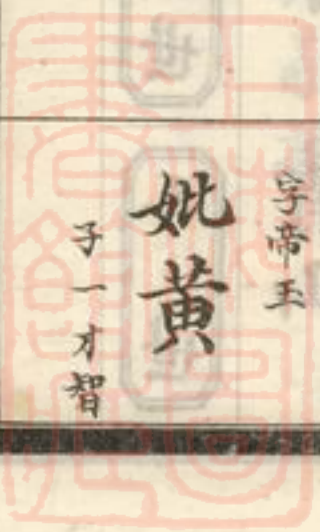 字帝玉
妣黄
子一才智